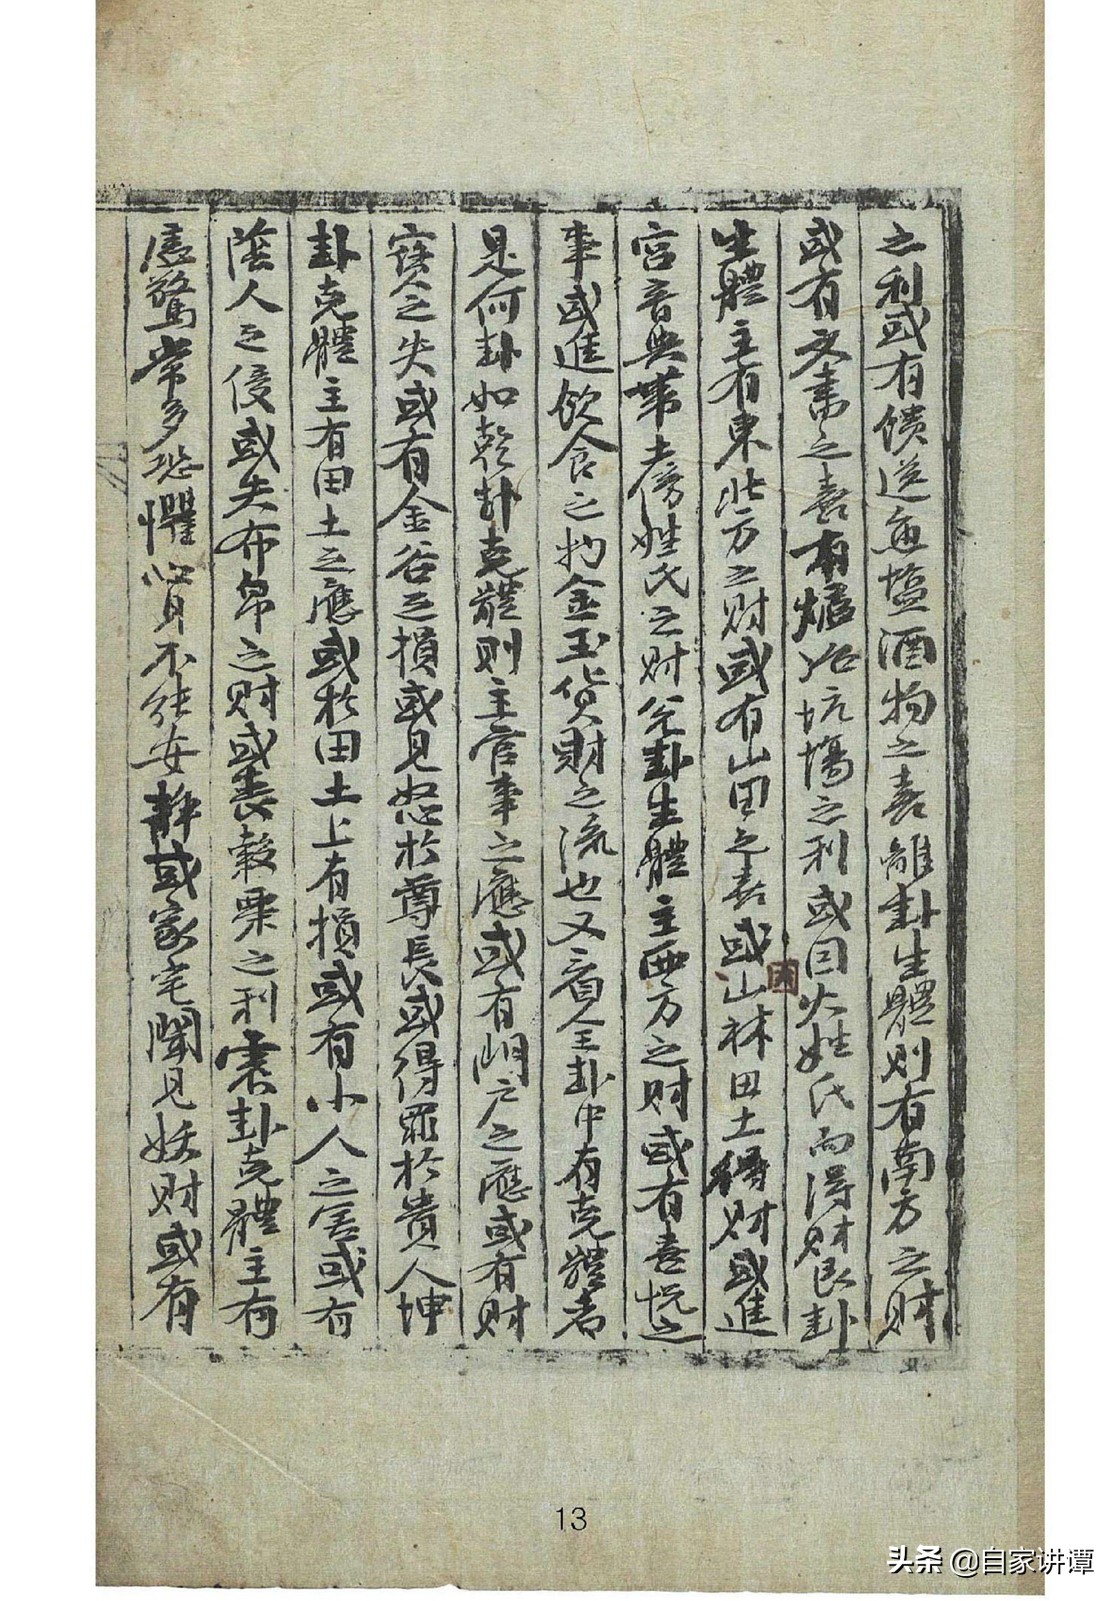 之利或有饋送魚塩酒物之喜離卦生體則有南方之財
或有文書之喜有爐冶坑場之利或因火姓氏而得財艮卦
生體主有東北方之財或有山田之喜或山林田土得財或進
宮音與帶土傍姓氏之財兌卦生體主西方之財或有喜悅之
事或進飲食之物金玉貨財之流也又看全卦中有克體者
是何卦如乾卦克體則主官事之應或有門户之應或有財
寳之失或有金谷之損或見怒於尊長或得罪於貴人坤
卦克體主有田土之應或於田土上有損或有小人之害或有
陰人之侵或失布帛之財或喪穀粟之利震卦克體主有
虛驚常多恐懼 不能安靜或家宅聞見妖 或有
13
头条 @自家讲谭